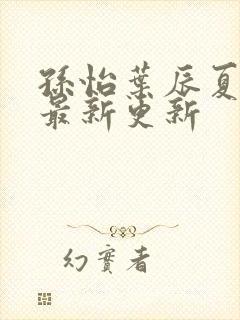 孫怡葉辰夏
最新更新
幻實者